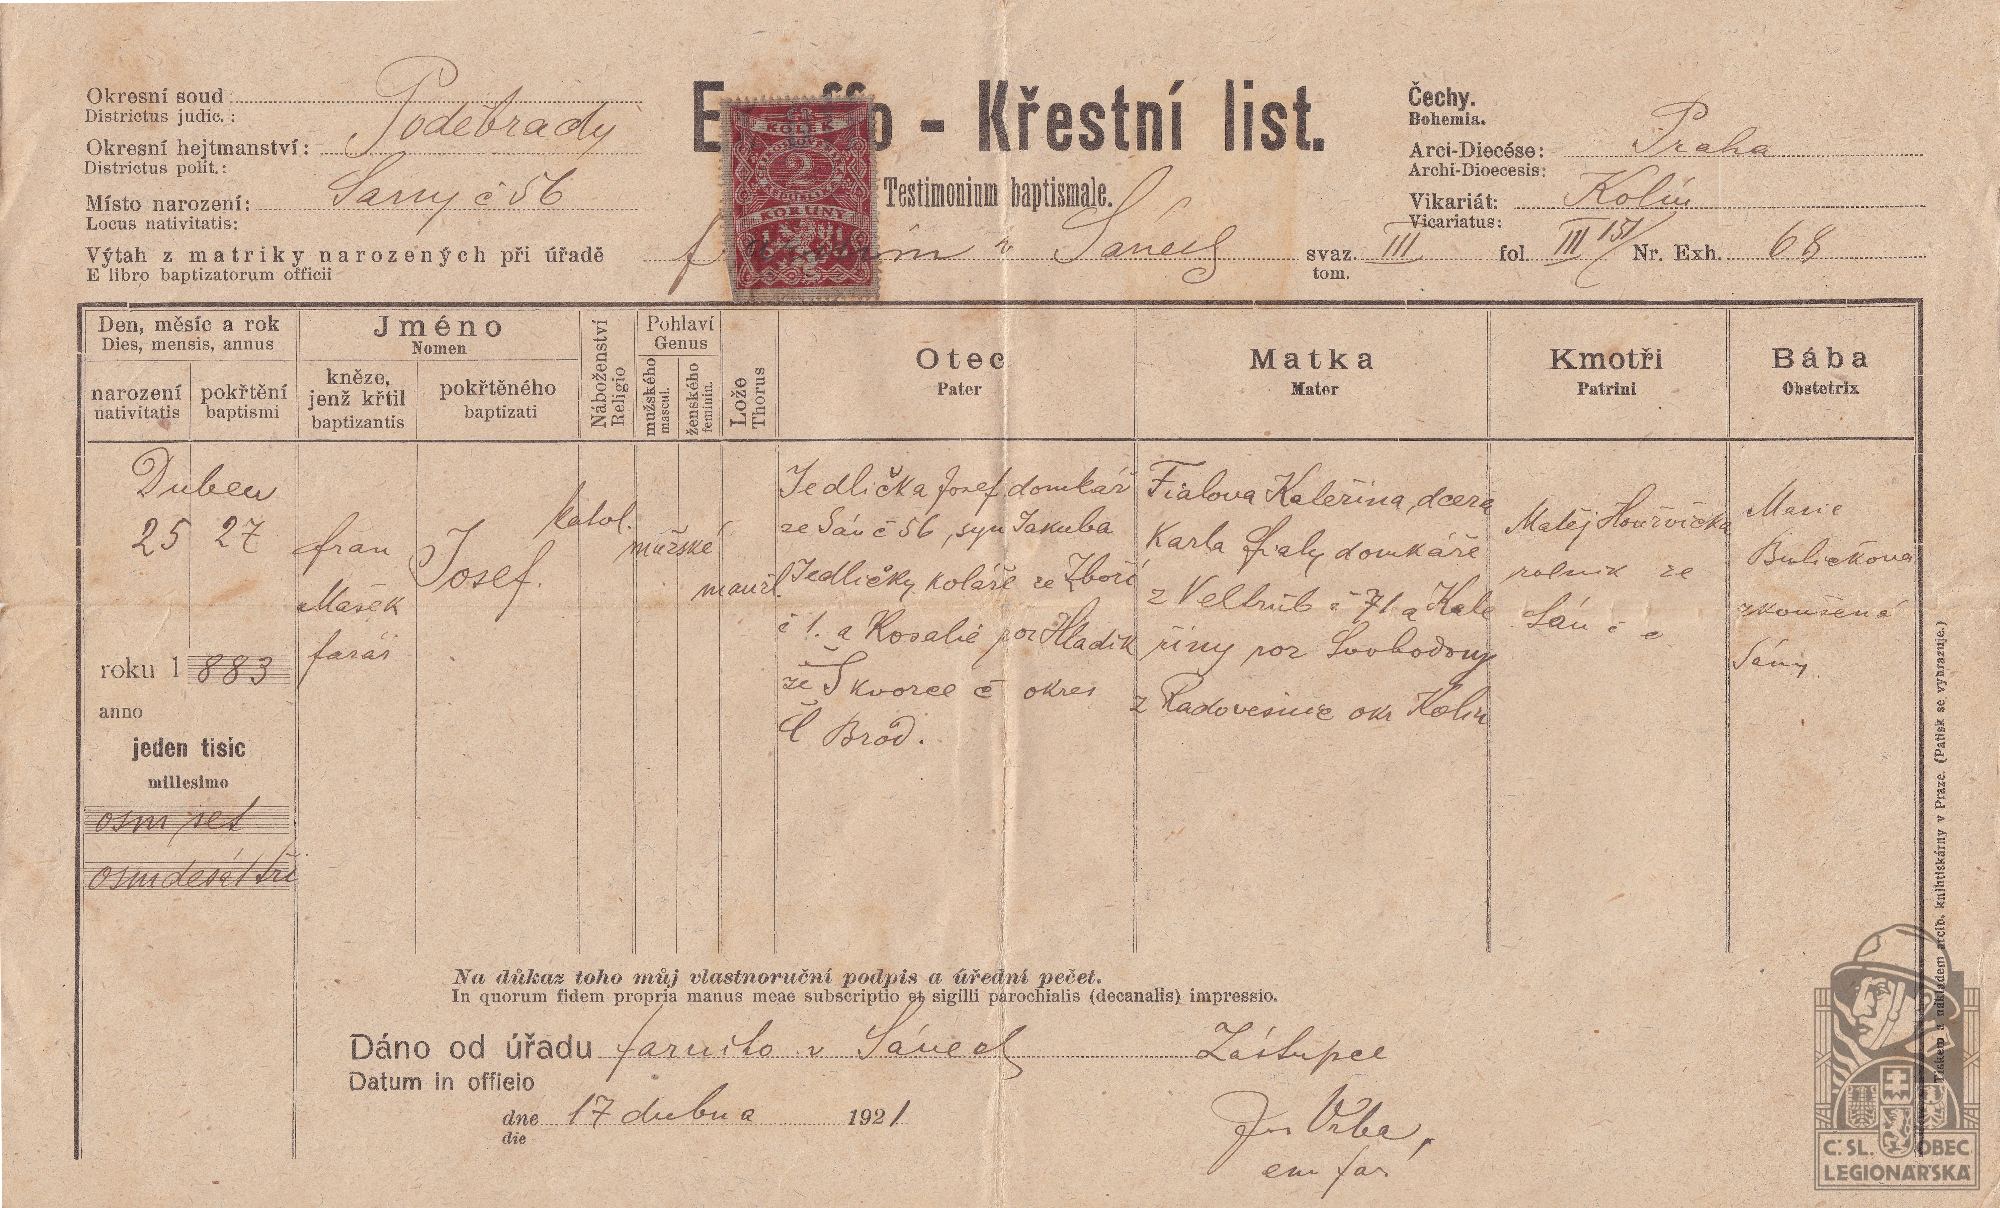 Křestní list.
Testimonium baptismale.
Okresní soud
Districtus judic.:
Okresní hejtmanství: Poděbrady
Districtus polit.:
Místo narození: Sány č 56
Locus nativitatis:
Výtah z matriky narozených při úřadě v Sánech
E libro baptizatorum officii
Čechy.
Bohemia.
Arci-Diecése: Praha
Archi-Dioecesis:
Vikariát: Kolín
Vicariatus:
svaz. III fol. III 151 Nr. Exh. 68
tom.
KOLEK
2
KORUNY
Den, měsíc a rok
Dies, mensis, annus
narození
nativitatis
pokřtění
baptismi
Jméno
Nomen
kněze,
jenž křtil
baptizantis
pokřtěného
baptizati
Náboženství
Religio
Pohlaví
Genus
mužského
mascul.
ženského
feminin.
Lože
Thorus
Otec
Pater
Matka
Mater
Kmotři
Patrini
Bába
Obstetrix
Duben
25 27
roku 1883
anno
jeden tisíc
millesimo
osm set
osmdesát tři
fran
Mašek
farář
Josef.
katol.
mužské
manžl.
Jedlička Josef, domkář
ze Sán č 56, syn Jakuba
Jedličky koláře ze Zboží
č 1. a Rosalie roz Hladík
ze Škvorce č okres
Č Brod.
Fialova Kateřina, dcera
Karla fialy domkáře
z Veltrub č 71 a Kate
řiny roz Svobodovy
z Radovesnic okr Kolín
Matěj
rolník ze
Sán č
Marie
zkoušená
Sány
Na důkaz toho můj vlastnoruční podpis a úřední pečet.
In quorum fidem propria manus meae subscriptio et sigilli parochialis (decanalis) impressio.
Dáno od úřadu farního v Sánech
Datum in officio
dne 17 dubna 1921
die
Zástupce
Jos Vrba,
em far.
Tiskem a nákladem arcib. knihtiskárny v Praze. (Patisk se vyhrazuje.)
Č. SL. OBEC
LEGIONÁŘSKÁ